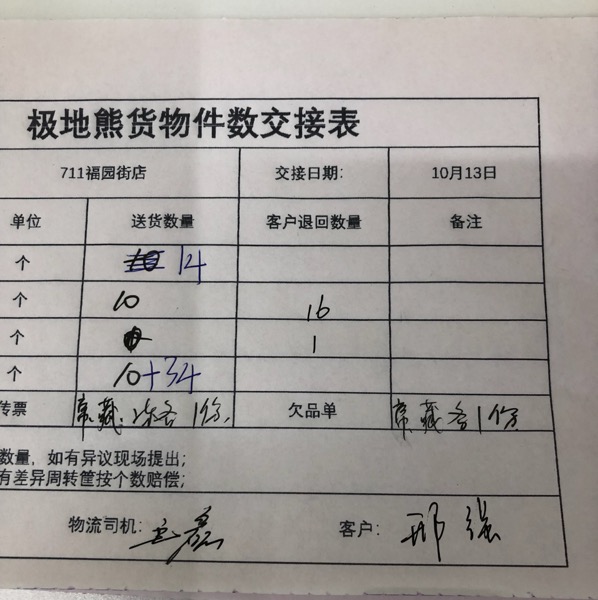 极地熊货物件数交接表
711福园街店 交接日期: 10月13日
单位 送货数量 客户退回数量 备注
个 14
个 10 16
个 1
个 10+34
传票 常藏.冻各1份. 欠品单 常藏各1份
数量，如有异议现场提出;
有差异周转筐按个数赔偿;
物流司机: 客户: 邢强